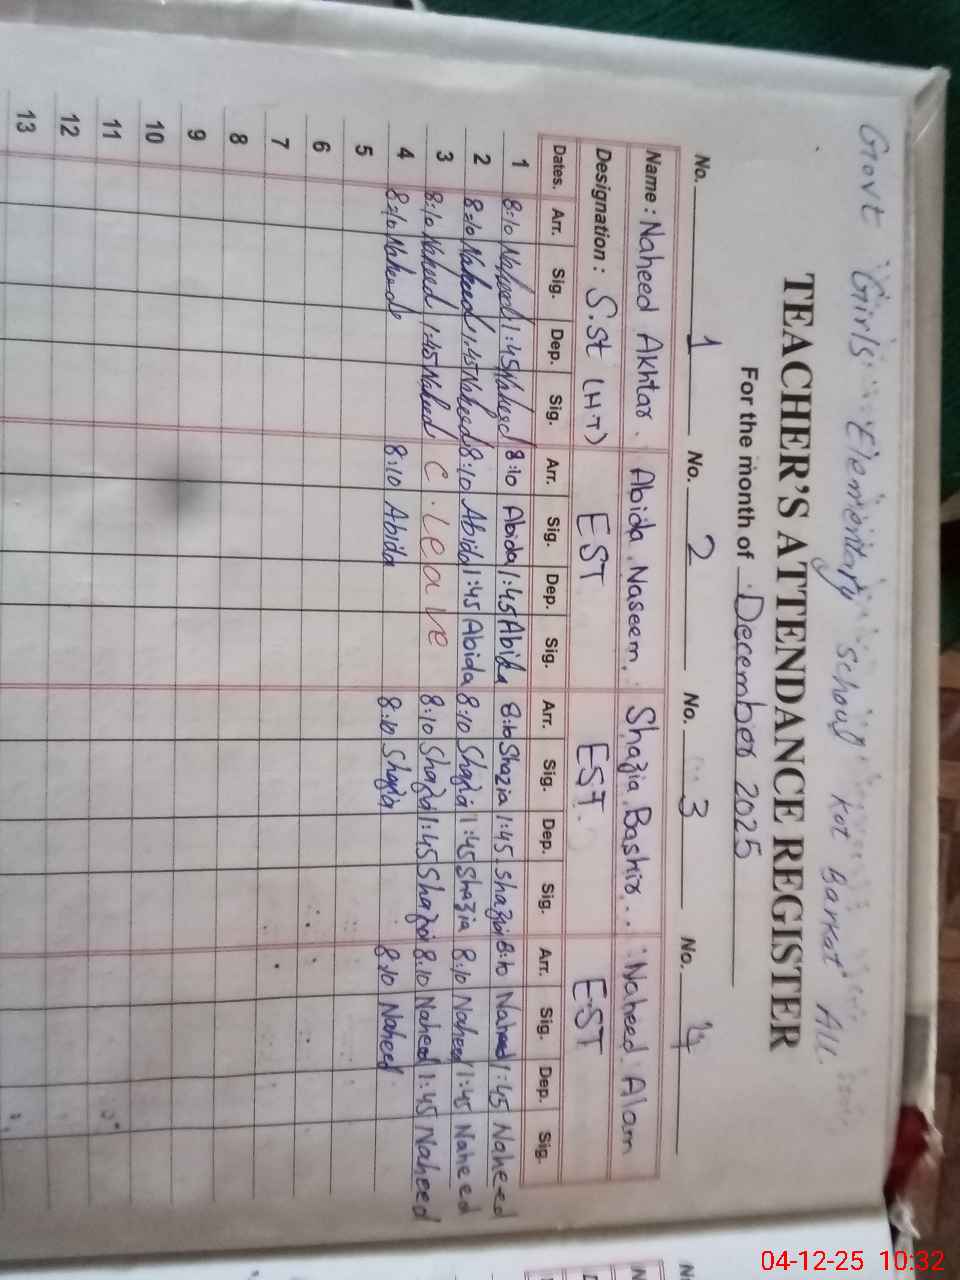 Govt Girls Elementary school kot Barkat Ali
TEACHER'S ATTENDANCE REGISTER
For the month of December 2025
No. 1 No. 2 No. 3 No. 4
Name : Naheed Akhtar. Abida Naseem. Shazia Bashir... Naheed Alam
Designation : S.st (H.T) EST EST. EST
Dates. Arr. Sig. Dep. Sig. Arr. Sig. Dep. Sig. Arr. Sig. Dep. Sig. Arr. Sig. Dep. Sig.
1 8:10 Naheed 1:45 Naheed 8:10 Abida 1:45 Abida 8:10 Shazia 1:45 Shazia 8:10 Naheed 1:45 Naheed
2 8:10 Naheed 1:45 Naheed 8:10 Abida 1:45 Abida 8:10 Shazia 1:45 Shazia 8:10 Naheed 1:45 Naheed
3 8:10 Naheed 1:45 Naheed C. Leave 8:10 Shazia 1:45 Shazia 8:10 Naheed 1:45 Naheed
4 8:10 Naheed 8:10 Abida 8:10 Shazia 8:10 Naheed
5
6
7
8
9
10
11
12
13
04-12-25 10:32